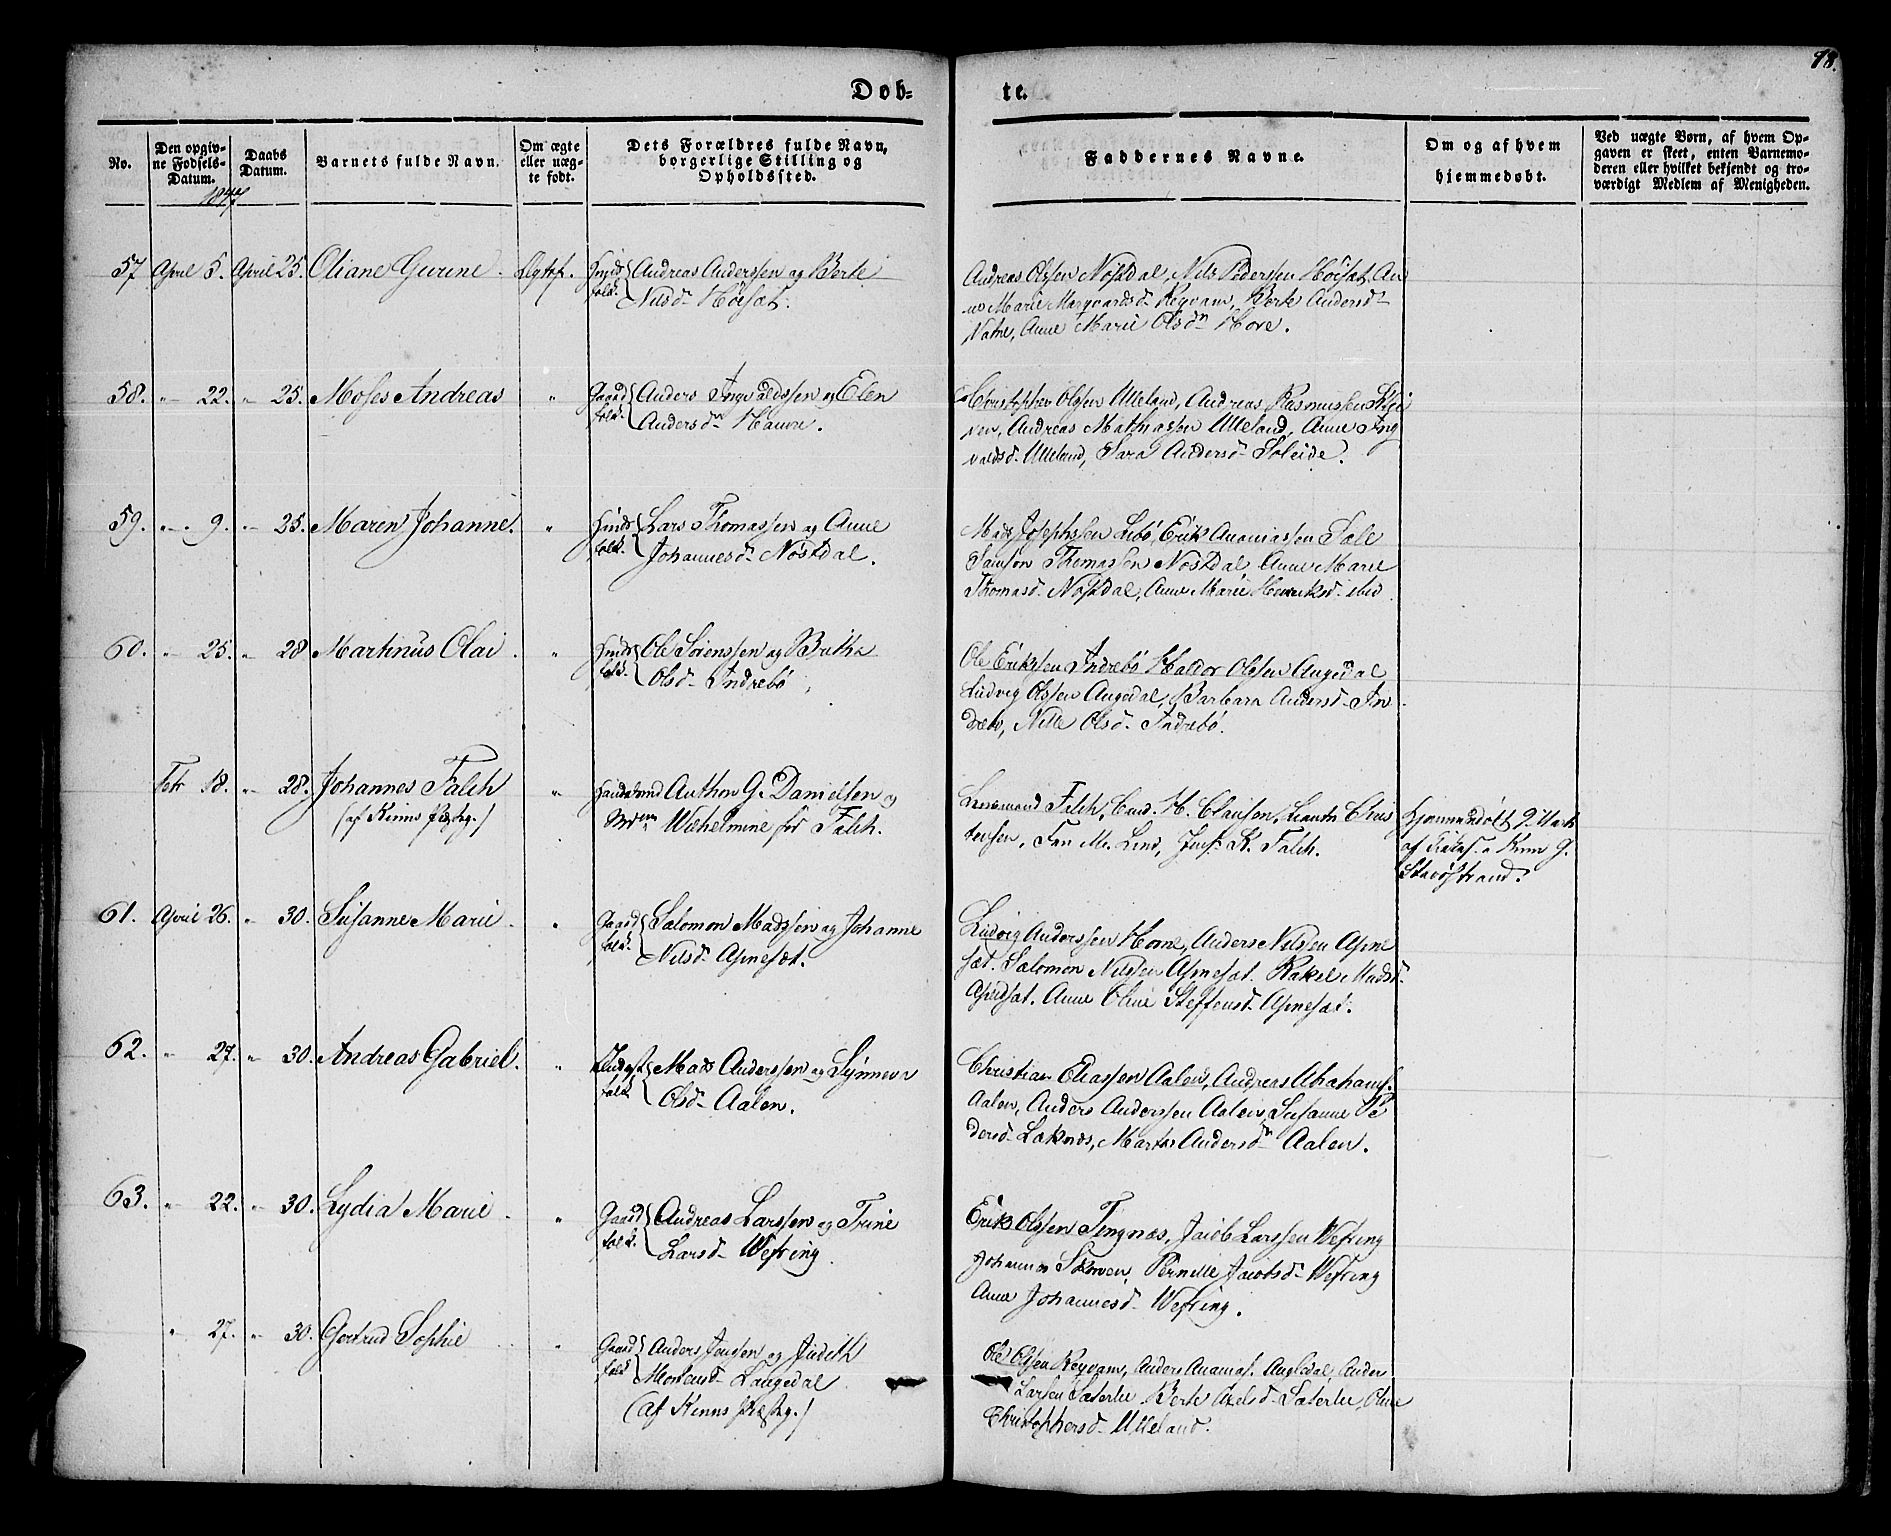 98.
Døb-
te.
No.
Den opgiv-
ne Fødsels-
Datum.
Daabs
Datum.
Barnets fulde Navn.
Om ægte
eller uæg-
te født.
Dets Forældres fulde Navn,
borgerlige Stilling og
Opholdssted.
Faddernes Navne.
Om og af hvem
hjemmedøbt.
Ved uægte Børn, af hvem Op-
gaven er skeet, enten Barnemo-
deren eller hvilket bekjendt og tro-
værdigt Medlem af Menigheden.
1847
57 April 5. April 25. Oliane Gurine. Ægtef. Andreas Anderssen og Berte
folk. Nilsd Høisæt.
Andreas Olssen Nøstdal, Nils Pederssen Høisæt, An
ne Marie Marqvardsd Reqvam, Berte Andersd
Anne Marie Olsdn Hove.
58. " 22. " 25. Moses Andreas " Gaard Anders Ingvaldssen og Elen
folk. Andersdn Hauvre.
Christopher Olssen Ulleland, Andreas Rasmussen
Andreas Mathiassen Ulleland, Anne Ing
valdsd Ulleland, Sara Andersd Soleide.
59. " 9. " 25. Maren Johanne. " Huus Lars Thomassen og Anne
folk. Johannesd Nøstdal.
Mads Josephssen Erik Ananiassen
Samson Thomassen Nøstdal Anne Marie
Thomasd Nøstdal, Anne Marie Henriksd ibid
60. " 25. " 28 Martinus Olai. " Huus Ole Sørenssen og Brithe
folk. Olsd Indrebø.
Ole Erikssen Indrebø Haldor Olssen Angedal
Ludvig Olssen Angedal, Barbara Andersd In
drebø, Nille Olsd Indrebø.
Febr 18. " 28. Johannes Falch " Anthon G. Danielsen og
(af Kinns Præstg.) Wilhelmine Falch.
Lensmand Falch, Cand. H. Clausen, Chris
tensen, M. Lind, K. Falch.
Hjemmedøbt 9 Marts
af Kinn
61. April 26. " 30. Susanne Marie. " Gaard Salomon Madssen og Johanne
folk. Nilsd Asmesæt.
Ludvig Anderssen Horne, Anders Nilssen Asme
sæt. Salomon Nilssen Asmesæt. Rakel Madsd
Anne Oline Steffensd Asmesæt.
62. " 27. " 30. Andreas Gabriel. " Mads Anderssen og Synneva
folk Olsd Aalen.
Christian Eliassen Aalen, Andreas Abrahams.
Aalen, Anders Anderssen Aalen, Susanne Pe
dersd Marthe Andersdn Aalen.
63. " 22. " 30. Lydia Marie. " Gaard Andreas Larssen og Trine
folk. Larsd Wefring.
Erik Olssen Tingnæs, Jacob Larssen Wefring
Johannes Pernille Jacobsd Wefring
Anne Johannesd Wefring.
" 27. " 30. Gertrud Sophie " Gaard Anders Jenssen og Judith
folk Monsd Langedal
(af Kinns Præstg.)
Ole Olssen Reqvam, Anders Ananias. Angedal, Anders
Larsen Sæterlie Berte Axelsd Sæterlie, Oline
Christophersd Ulleland.